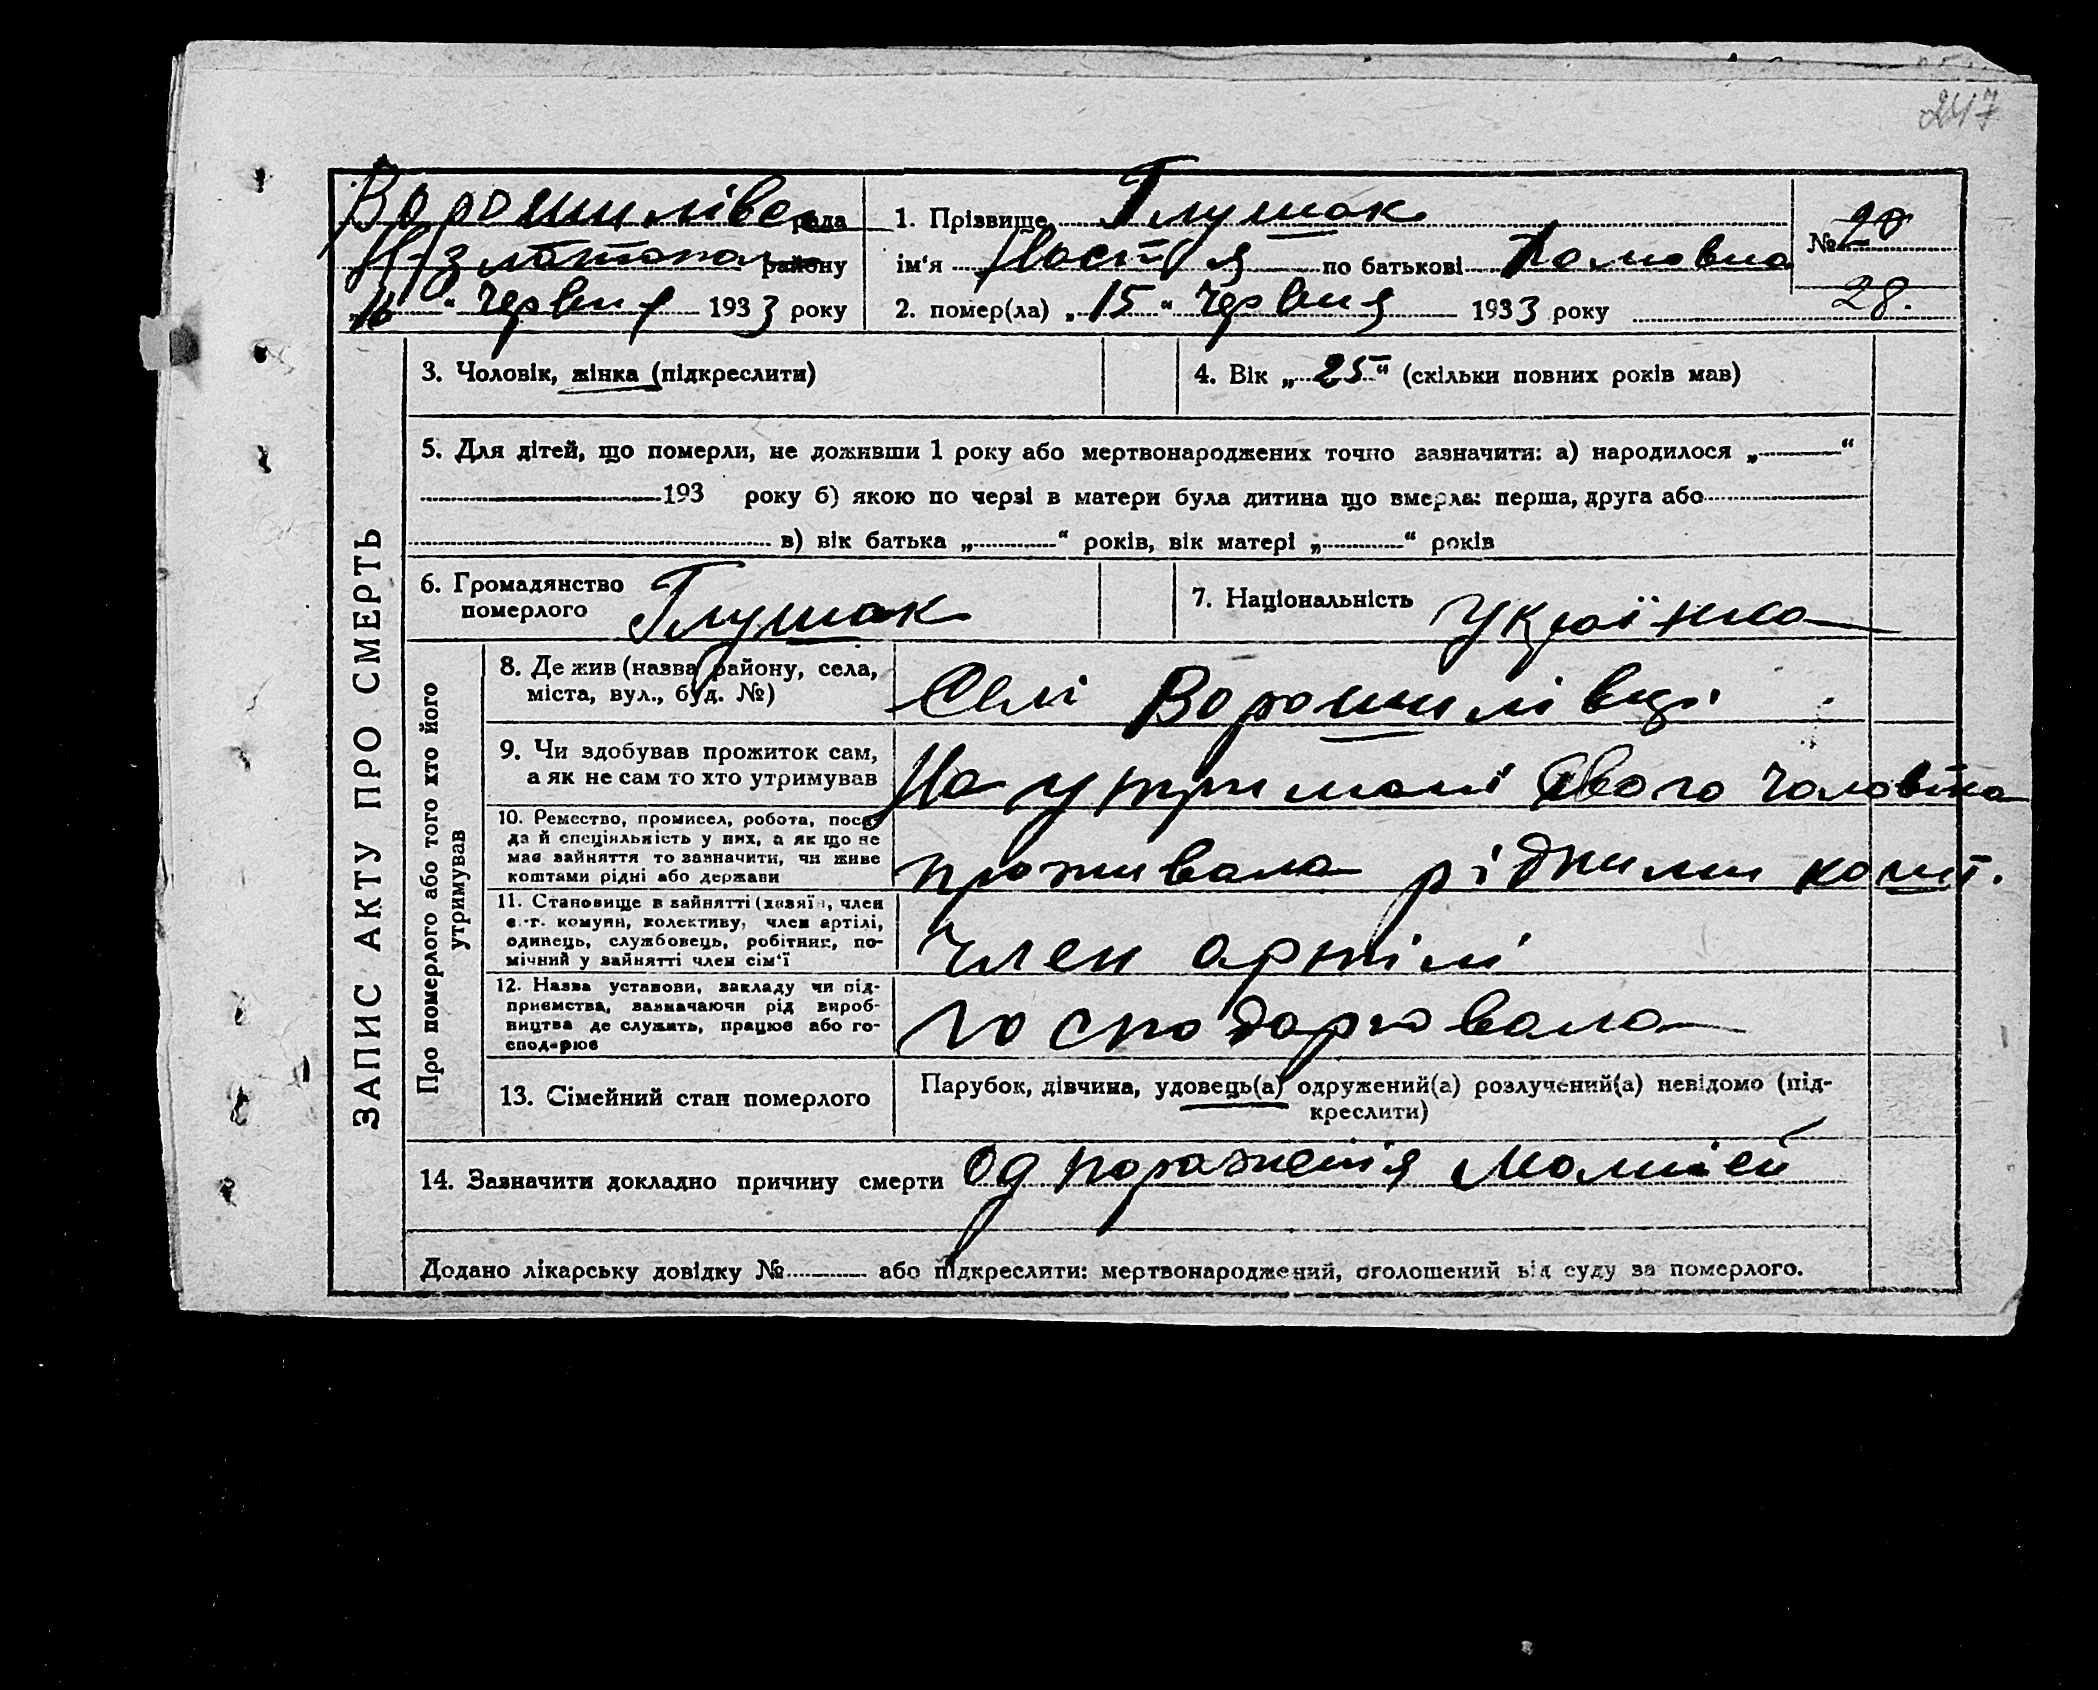 247
Ворошилівс рада
Н-Златопол району
„16“ Червня 1933 року
1. Прізвище Глушак
ім'я Настя по батькові
№ 20
28.
2. помер(ла) „15“ Червня 1933 року
ЗАПИС АКТУ ПРО СМЕРТЬ
3. Чоловік, жінка (підкреслити)
4. Вік „25“ (скільки повних років мав)
5. Для дітей, що померли, не доживши 1 року або мертвонароджених точно зазначити: а) народилося „ “
193 року б) якою по черзі в матери була дитина що вмерла: перша, друга або
в) вік батька „ “ років, вік матері „ “ років
6. Громадянство
померлого Глушак
7. Національність Українка
Про померлого або того хто його
утримував
8. Де жив (назва району, села,
міста, вул., буд. №)
Селі Ворошилівці
9. Чи здобував прожиток сам,
а як не сам то хто утримував
На утримані свого чоловіка
10. Ремество, промисел, робота, поса-
да й спеціяльність у них, а як що не
має зайняття то зазначити, чи живе
коштами рідні або держави
проживала рідними кошт.
11. Становище в зайнятті (хазяїн, член
с.-г. комуни, колективу, член артілі,
одинець, службовець, робітник, по-
мічний у зайнятті член сім'ї
Член артілі
12. Назва установи, закладу чи під-
приємства, зазначаючи рід вироб-
ництва де служить, працює або го-
сподарює
господарювала
13. Сімейний стан померлого
Парубок, дівчина, удовець(а) одружений(а) розлучений(а) невідомо (під-
креслити)
14. Зазначити докладно причину смерти Од пораженія Молнієй
Додано лікарську довідку № або підкреслити: мертвонароджений, оголошений від суду за померлого.